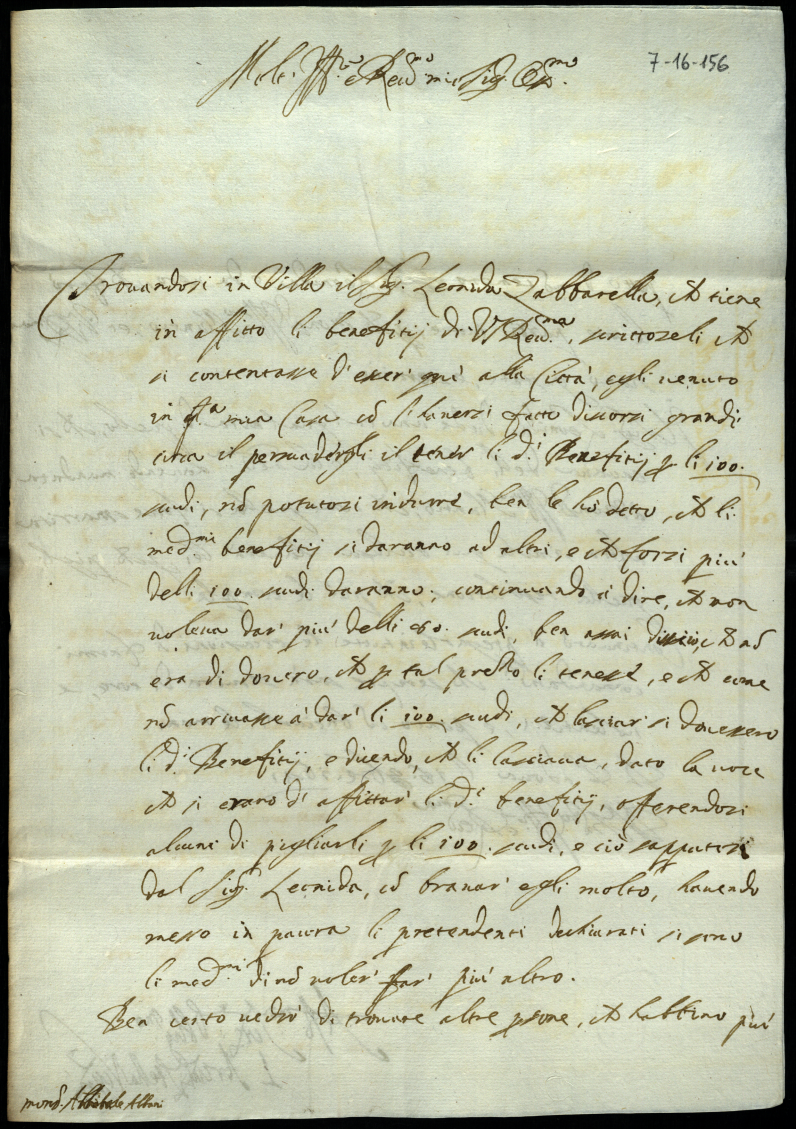 7-16-156
Molt' Ill.re e Rev.mo mio Sig.r Oss.mo
Trovandosi in Villa il Sig.r Leonida Zabbarella, ch tiene
in affitto li benefitij di V. S. Rev.ma, scrittoseli ch
si contentasse d'esser' qui alla Città, egli venuto
in q.ta mia Casa cō l'haversi fatto discorsi grandi
circa il persuadergli il tener li d.i Benefitij p li 100.
scudi, nō potutosi indurre, ben le hò detto, ch li
med.mi benefitij si daranno ad altri, e ch forsi più
delli 100. scudi daranno; continuando à dire, ch non
voleva dar' più delli 80. scudi, ben assai, ch nō
era di dovero, ch p tal prezzo li tenesse, e ch come
nō arrivasse à dar' li 100. scudi, ch lasciar' si dovessero
li d.i Benefitij, e dicendo, ch li lassiava, dato la voce
ch si erano d' affittar' li d.i benefitij, offerendosi
alcuni di pigliarli p li 100. scudi, e ciò sapputosi
dal Sig.r Leonida, cō bravar' egli molto, havendo
messo in paura li pretendenti dechiarati si sono
li med.mi di nō voler' far' più altro.
Ben certo vedrò di trovare altre psone, ch habbino più
mons. Annibale Albani